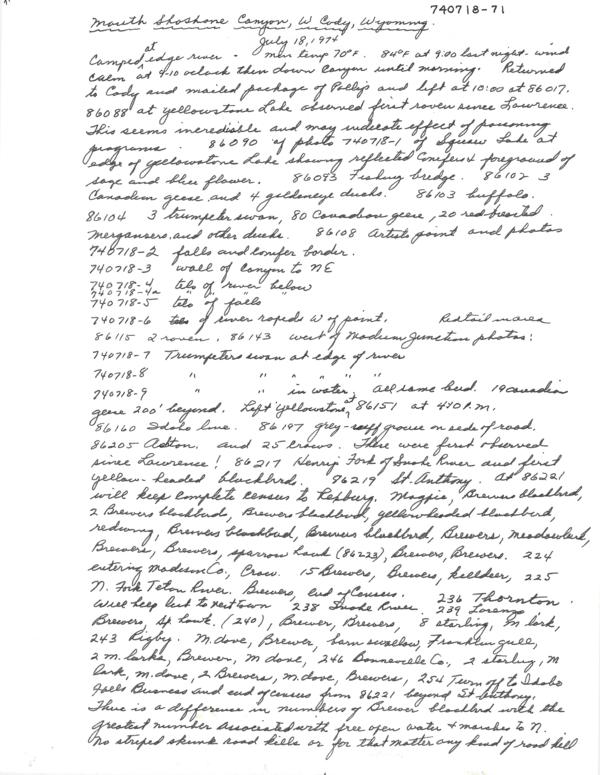 740718-71
Mouth Shoshone Canyon, W Cody, Wyoming.
July 18, 1974
Camped at edge river - min temp 70°F. 84°F at 9:00 last night - wind
calm at 9-10 oclock then down canyon until morning. Returned
to Cody and mailed package of Pellets and left at 10:00 at 86017.
86088 at yellowstone Lake observed first raven since Lawrence.
This seems incredible and may indicate effect of poisoning
programs. 86090 of photo 740718-1 of Squaw Lake at
edge of yellowstone Lake showing reflected Conifers & foreground of
sage and blue flower. 86093 Fishing bridge. 86102 3
Canadian geese and 4 goldeneye ducks. 86103 buffalo.
86104 3 trumpeter swan, 80 Canadian geese, 20 red breasted
Mergansers, and other ducks. 86108 Artists point and photos
740718-2 falls and conifer border.
740718-3 wall of canyon to NE
740718-4 tele of river below
740718-4a " " " "
740718-5 tele of falls
740718-6 of river rapids W of point. Redtail mares
86115 2 raven. 86143 west of Madison Junction photos:
740718-7 Trumpeter swan at edge of river
740718-8 " " " " " "
740718-9 " " in water, all same bird. 19 canadian
geese 200' beyond. Left yellowstone at 86151 at 4:40 P.M.
86160 Idaho line. 86197 grey-ruff grouse on side of road.
86205 Ashton. and 25 Crows. These were first observed
since Lawrence! 86217 Henrys Fork of Snake River and first
yellow-headed blackbird. 86219 St. Anthony. At 86221
will keep complete census to Rexburg. Magpie, Brewers blackbird,
2 Brewers blackbird, Brewers blackbird, yellowheaded blackbird,
redwing, Brewers blackbird, Brewers blackbird, Brewers, meadowlark,
Brewers, Brewers, sparrow hawk (86223), Brewers, Brewers. 224
entering Madison Co., Crow. 15 Brewers, Brewers, killdeer, 225
N. Fork Teton River. Brewers, end of Census. 236 Thornton.
Will keep list to next town 238 Snake River. 239 Lorenzo,
Brewers, Sp hawk. (240), Brewer, Brewers, 8 starling, M lark,
243 Rigby. M. dove, Brewer, barn swallow, Franklin gull,
2 m. larks, Brewer, M dove, 246 Bonneville Co., 2 starling, M
lark, m. dove, 2 Brewers, M. dove, Brewers, 254 Turn off to Idaho
Falls Business and end of census from 86221 beyond St Anthony.
There is a difference in numbers of Brewer blackbird with the
greatest number associated with free open water & marshes to N.
No striped skunk road kills or for that matter any kind of road kill